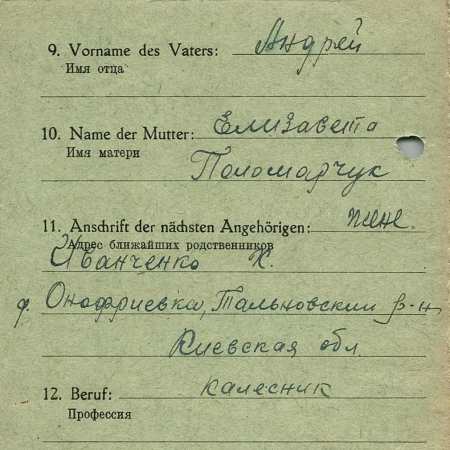 9. Vorname des Vaters: Андрей
Имя отца
10. Name der Mutter: Елизавета
Имя матери
Поломарчук
11. Anschrift der nächsten Angehörigen: жене.
Адрес ближайших родственников
Иванченко Х.
д. Онофриевка, Тальновский р-н
Киевская обл.
12. Beruf: калесник
Профессия